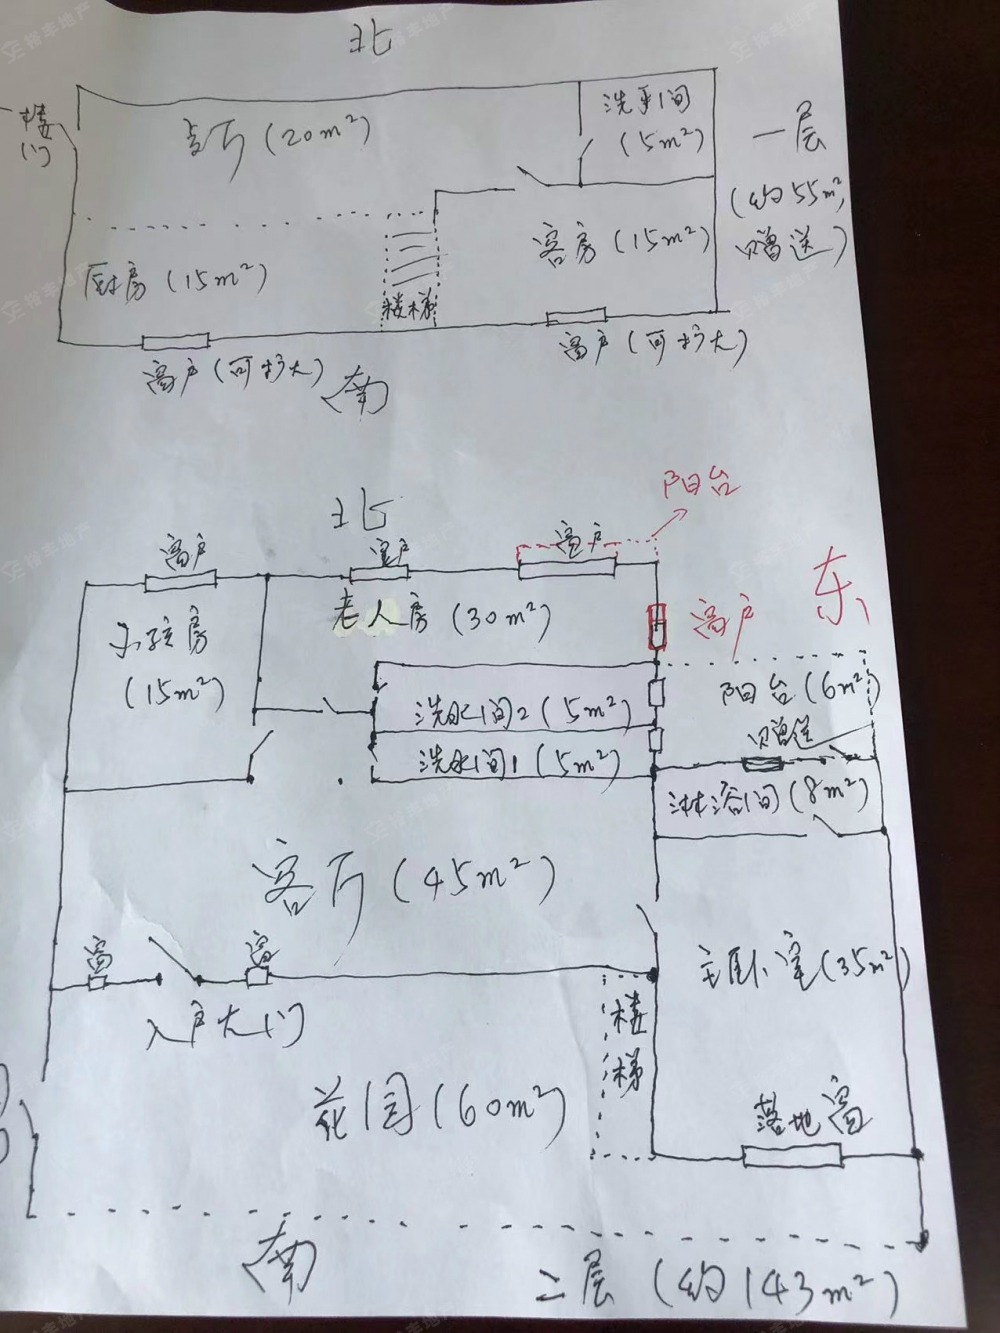 北
一楼
门
客厅(20m²)
洗手间
(5m²)
一层
(约55m²,
赠送)
厨房(15m²)
楼梯
客房(15m²)
窗户(可扩大)
窗户(可扩大)
南
北
阳台
窗户
窗户
窗户
东
小孩房
(15m²)
老人房(30m²)
窗户
洗水间2(5m²)
洗水间1(5m²)
阳台(6m²)
赠送
淋浴间(8m²)
客厅(45m²)
窗
窗
入户大门
主卧室(35m²)
楼梯
花园(60m²)
落地窗
南
二层(约143m²)
裕丰地产